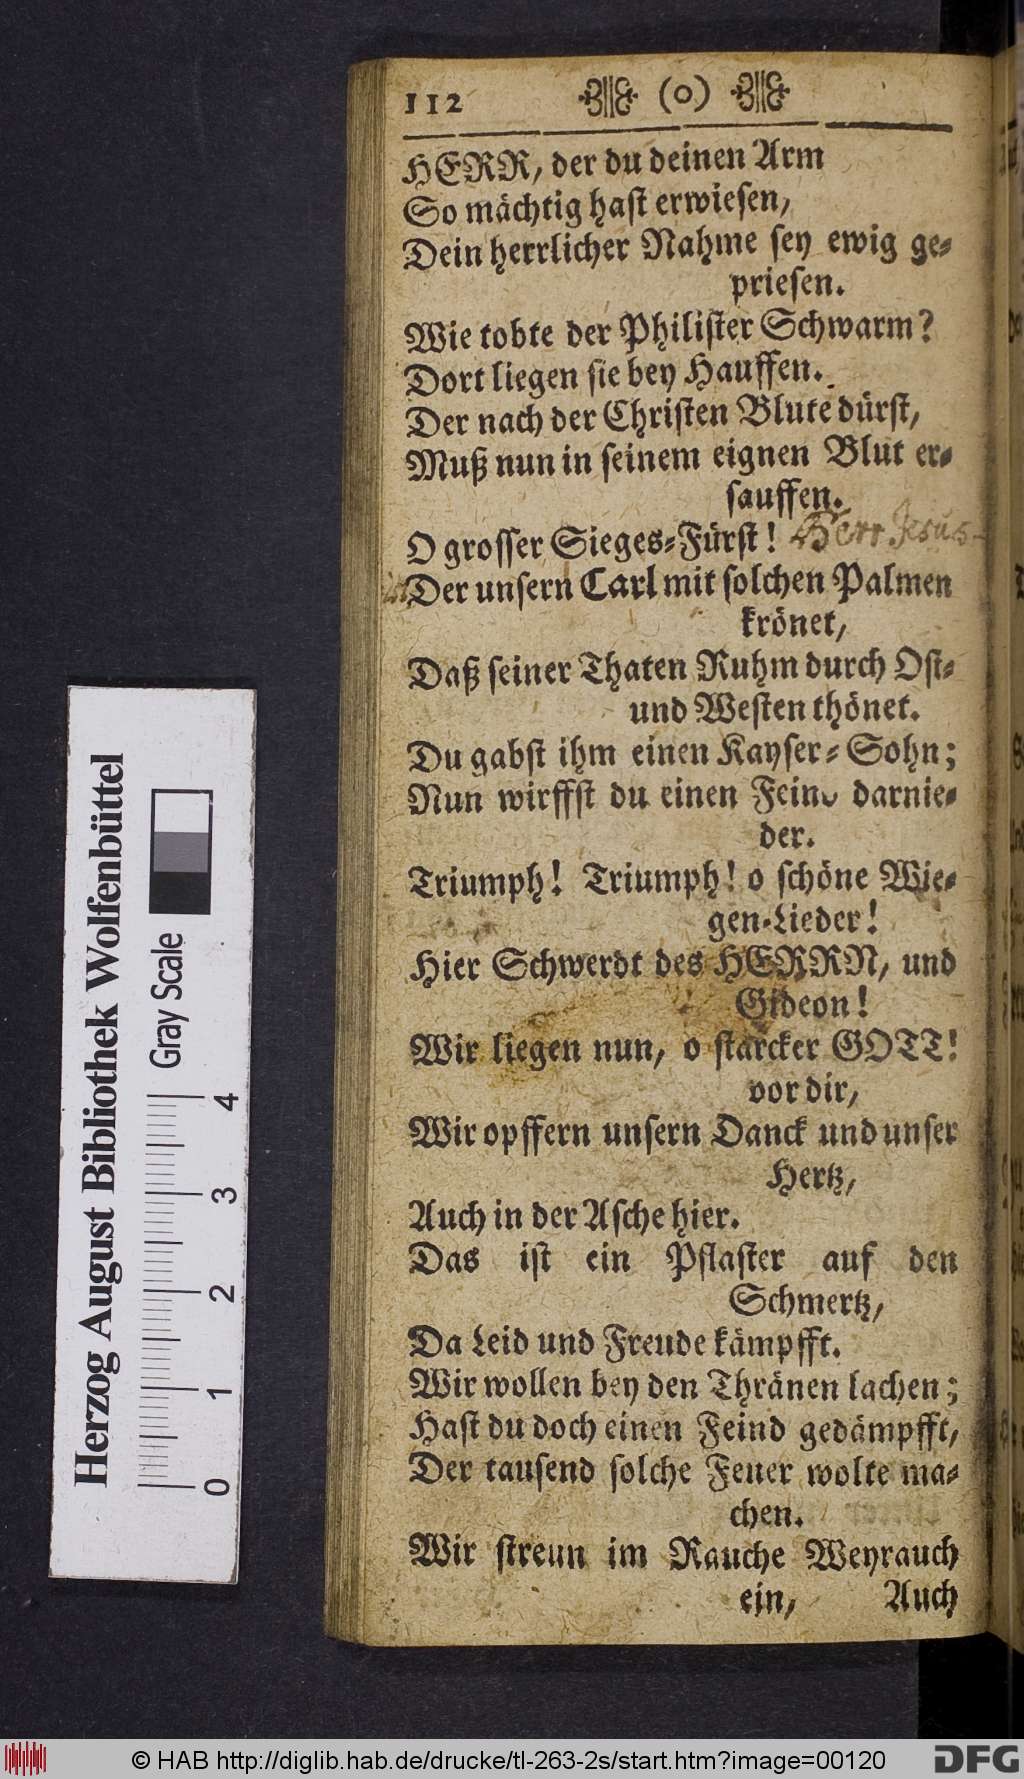 112 (o)
HERR, der du deinen Arm
So mächtig hast erwiesen,
Dein herrlicher Nahme sey ewig ge-
priesen.
Wie tobte der Philister Schwarm?
Dort liegen sie bey Hauffen.
Der nach der Christen Blute dürst,
Muß nun in seinem eignen Blut er-
sauffen.
O grosser Sieges-Fürst! Herr Jesus
Der unsern Carl mit solchen Palmen
krönet,
Daß seiner Thaten Ruhm durch Ost-
und Westen thönet.
Du gabst ihm einen Kayser-Sohn;
Nun wirffst du einen Feind darnie-
der.
Triumph! Triumph! o schöne Wie-
gen-Lieder!
Hier Schwerdt des HERRN, und
Gideon!
Wir liegen nun, o starcker GOTT!
vor dir,
Wir opffern unsern Danck und unser
Hertz,
Auch in der Asche hier.
Das ist ein Pflaster auf den
Schmertz,
Da Leid und Freude kämpfft.
Wir wollen bey den Thränen lachen;
Hast du doch einen Feind gedämpfft,
Der tausend solche Feuer wolte ma-
chen.
Wir streun im Rauche Weyrauch
ein, Auch
Herzog August Bibliothek Wolfenbüttel
Gray Scale
0 1 2 3 4
© HAB http://diglib.hab.de/drucke/tl-263-2s/start.htm?image=00120
DFG